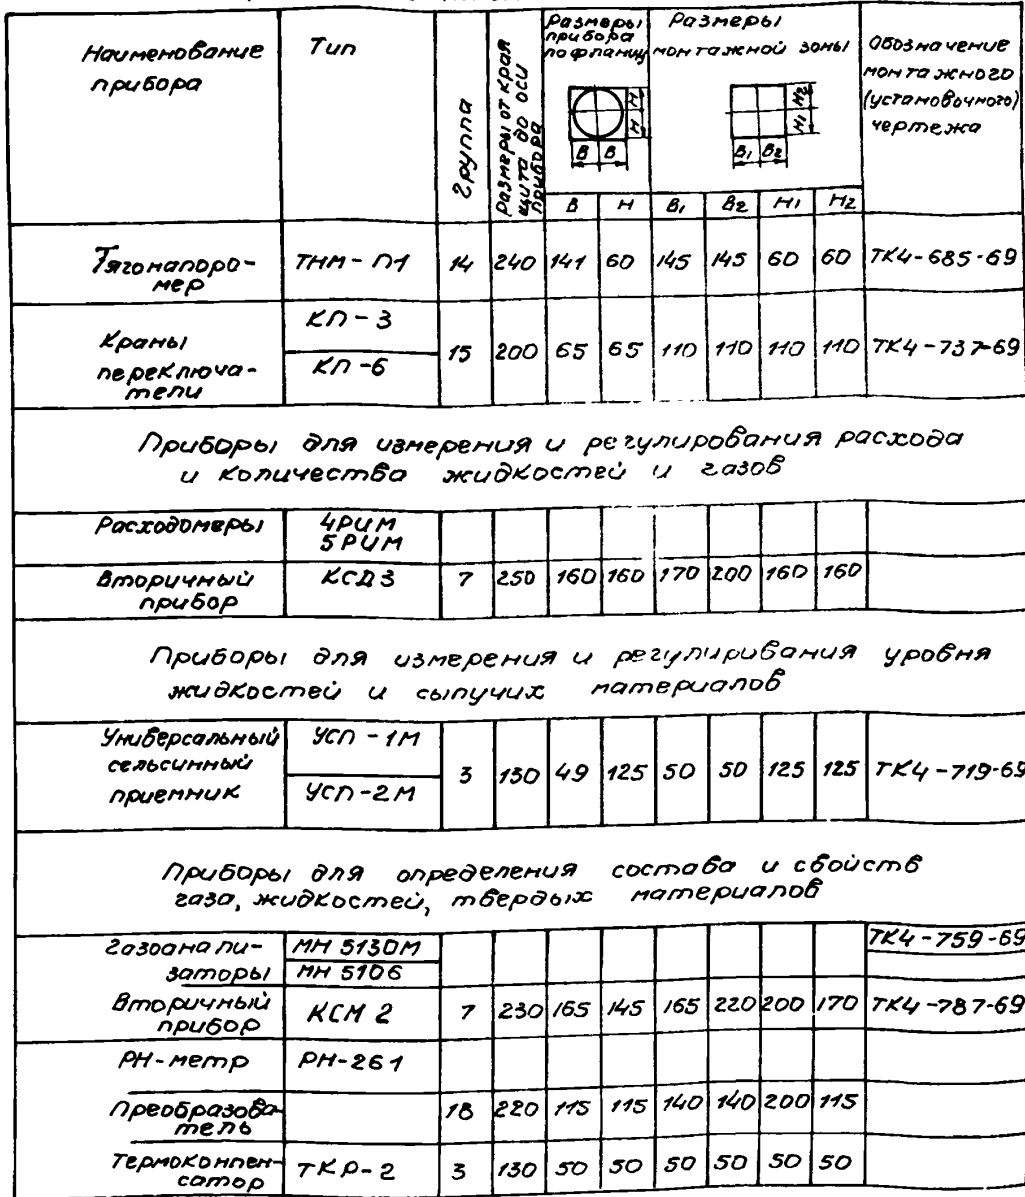 Наименование прибора
Тип
Группа
Размеры от края щита до оси прибора
Размеры прибора по фланцу
H H
B B
Размеры монтажной зоны
H2 H1
B1 B2
Обозначение монтажного (установочного) чертежа
B H B1 B2 H1 H2
Тягонапоро-
мер
ТНМ-П1 14 240 141 60 145 145 60 60 ТК4-685-69
Краны
переключа-
тели
КП-3
КП-6
15 200 65 65 110 110 110 110 ТК4-737-69
Приборы для измерения и регулирования расхода
и количества жидкостей и газов
Расходомеры 4РИМ
5РИМ
Вторичный
прибор
КСД3 7 250 160 160 170 200 160 160
Приборы для измерения и регулирования уровня
жидкостей и сыпучих материалов
Универсальный
сельсинный
приемник
УСП-1М
УСП-2М
3 130 49 125 50 50 125 125 ТК4-719-69
Приборы для определения состава и свойств
газа, жидкостей, твердых материалов
Газоанали-
заторы
МН 5130М
МН 5106
ТК4-759-69
Вторичный
прибор
КСМ 2 7 230 165 145 165 220 200 170 ТК4-787-69
РН-метр РН-261
Преобразова-
тель
18 220 115 115 140 140 200 115
Термокомпен-
сатор
ТКР-2 3 130 50 50 50 50 50 50